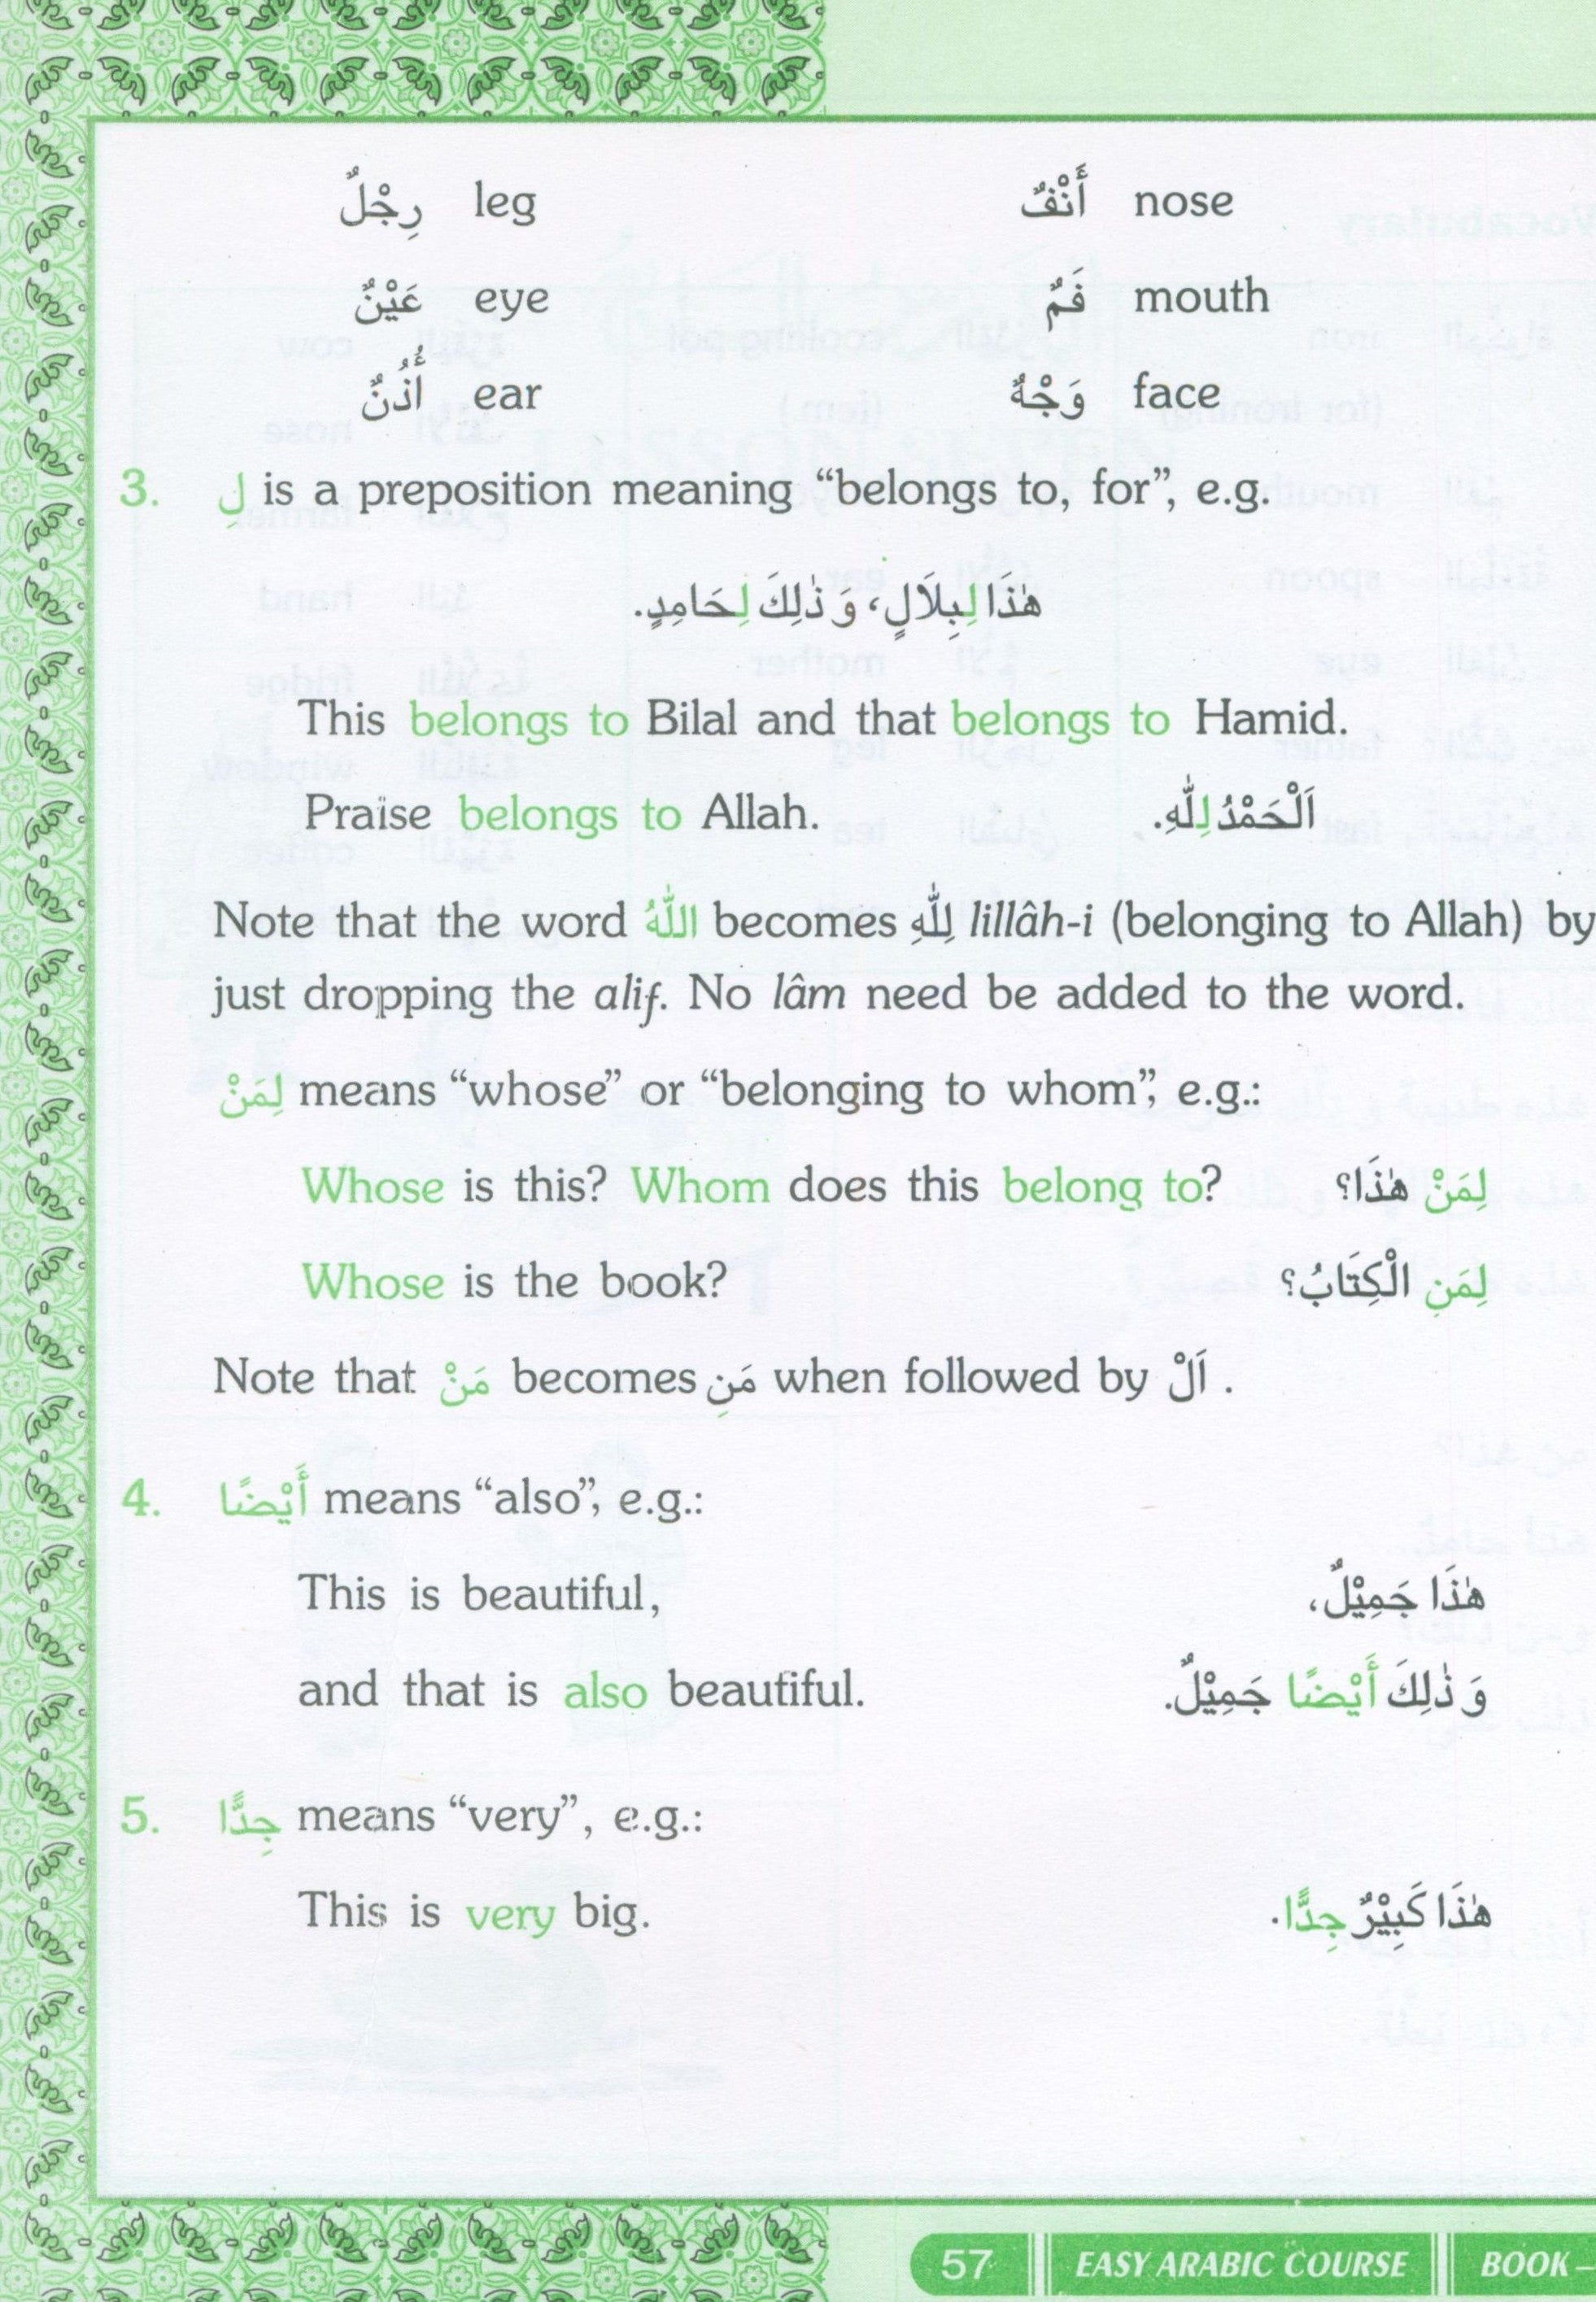 رِجْلٌ leg أَنْفٌ nose
عَيْنٌ eye فَمٌ mouth
أُذُنٌ ear وَجْهٌ face
3. لِ is a preposition meaning “belongs to, for”, e.g.
هٰذَا لِبِلَالٍ، وَ ذٰلِكَ لِحَامِدٍ.
This belongs to Bilal and that belongs to Hamid.
Praise belongs to Allah. اَلْحَمْدُ لِلّٰهِ.
Note that the word اللّٰهُ becomes لِلّٰهِ lillâh-i (belonging to Allah) by
just dropping the alif. No lâm need be added to the word.
لِمَنْ means “whose” or “belonging to whom”, e.g.:
Whose is this? Whom does this belong to? لِمَنْ هٰذَا؟
Whose is the book? لِمَنِ الْكِتَابُ؟
Note that مَنْ becomes مَنِ when followed by اَلْ .
4. أَيْضًا means “also”, e.g.:
This is beautiful, هٰذَا جَمِيْلٌ،
and that is also beautiful. وَ ذٰلِكَ أَيْضًا جَمِيْلٌ.
5. جِدًّا means “very”, e.g.:
This is very big. هٰذَا كَبِيْرٌ جِدًّا.
57 EASY ARABIC COURSE BOOK –